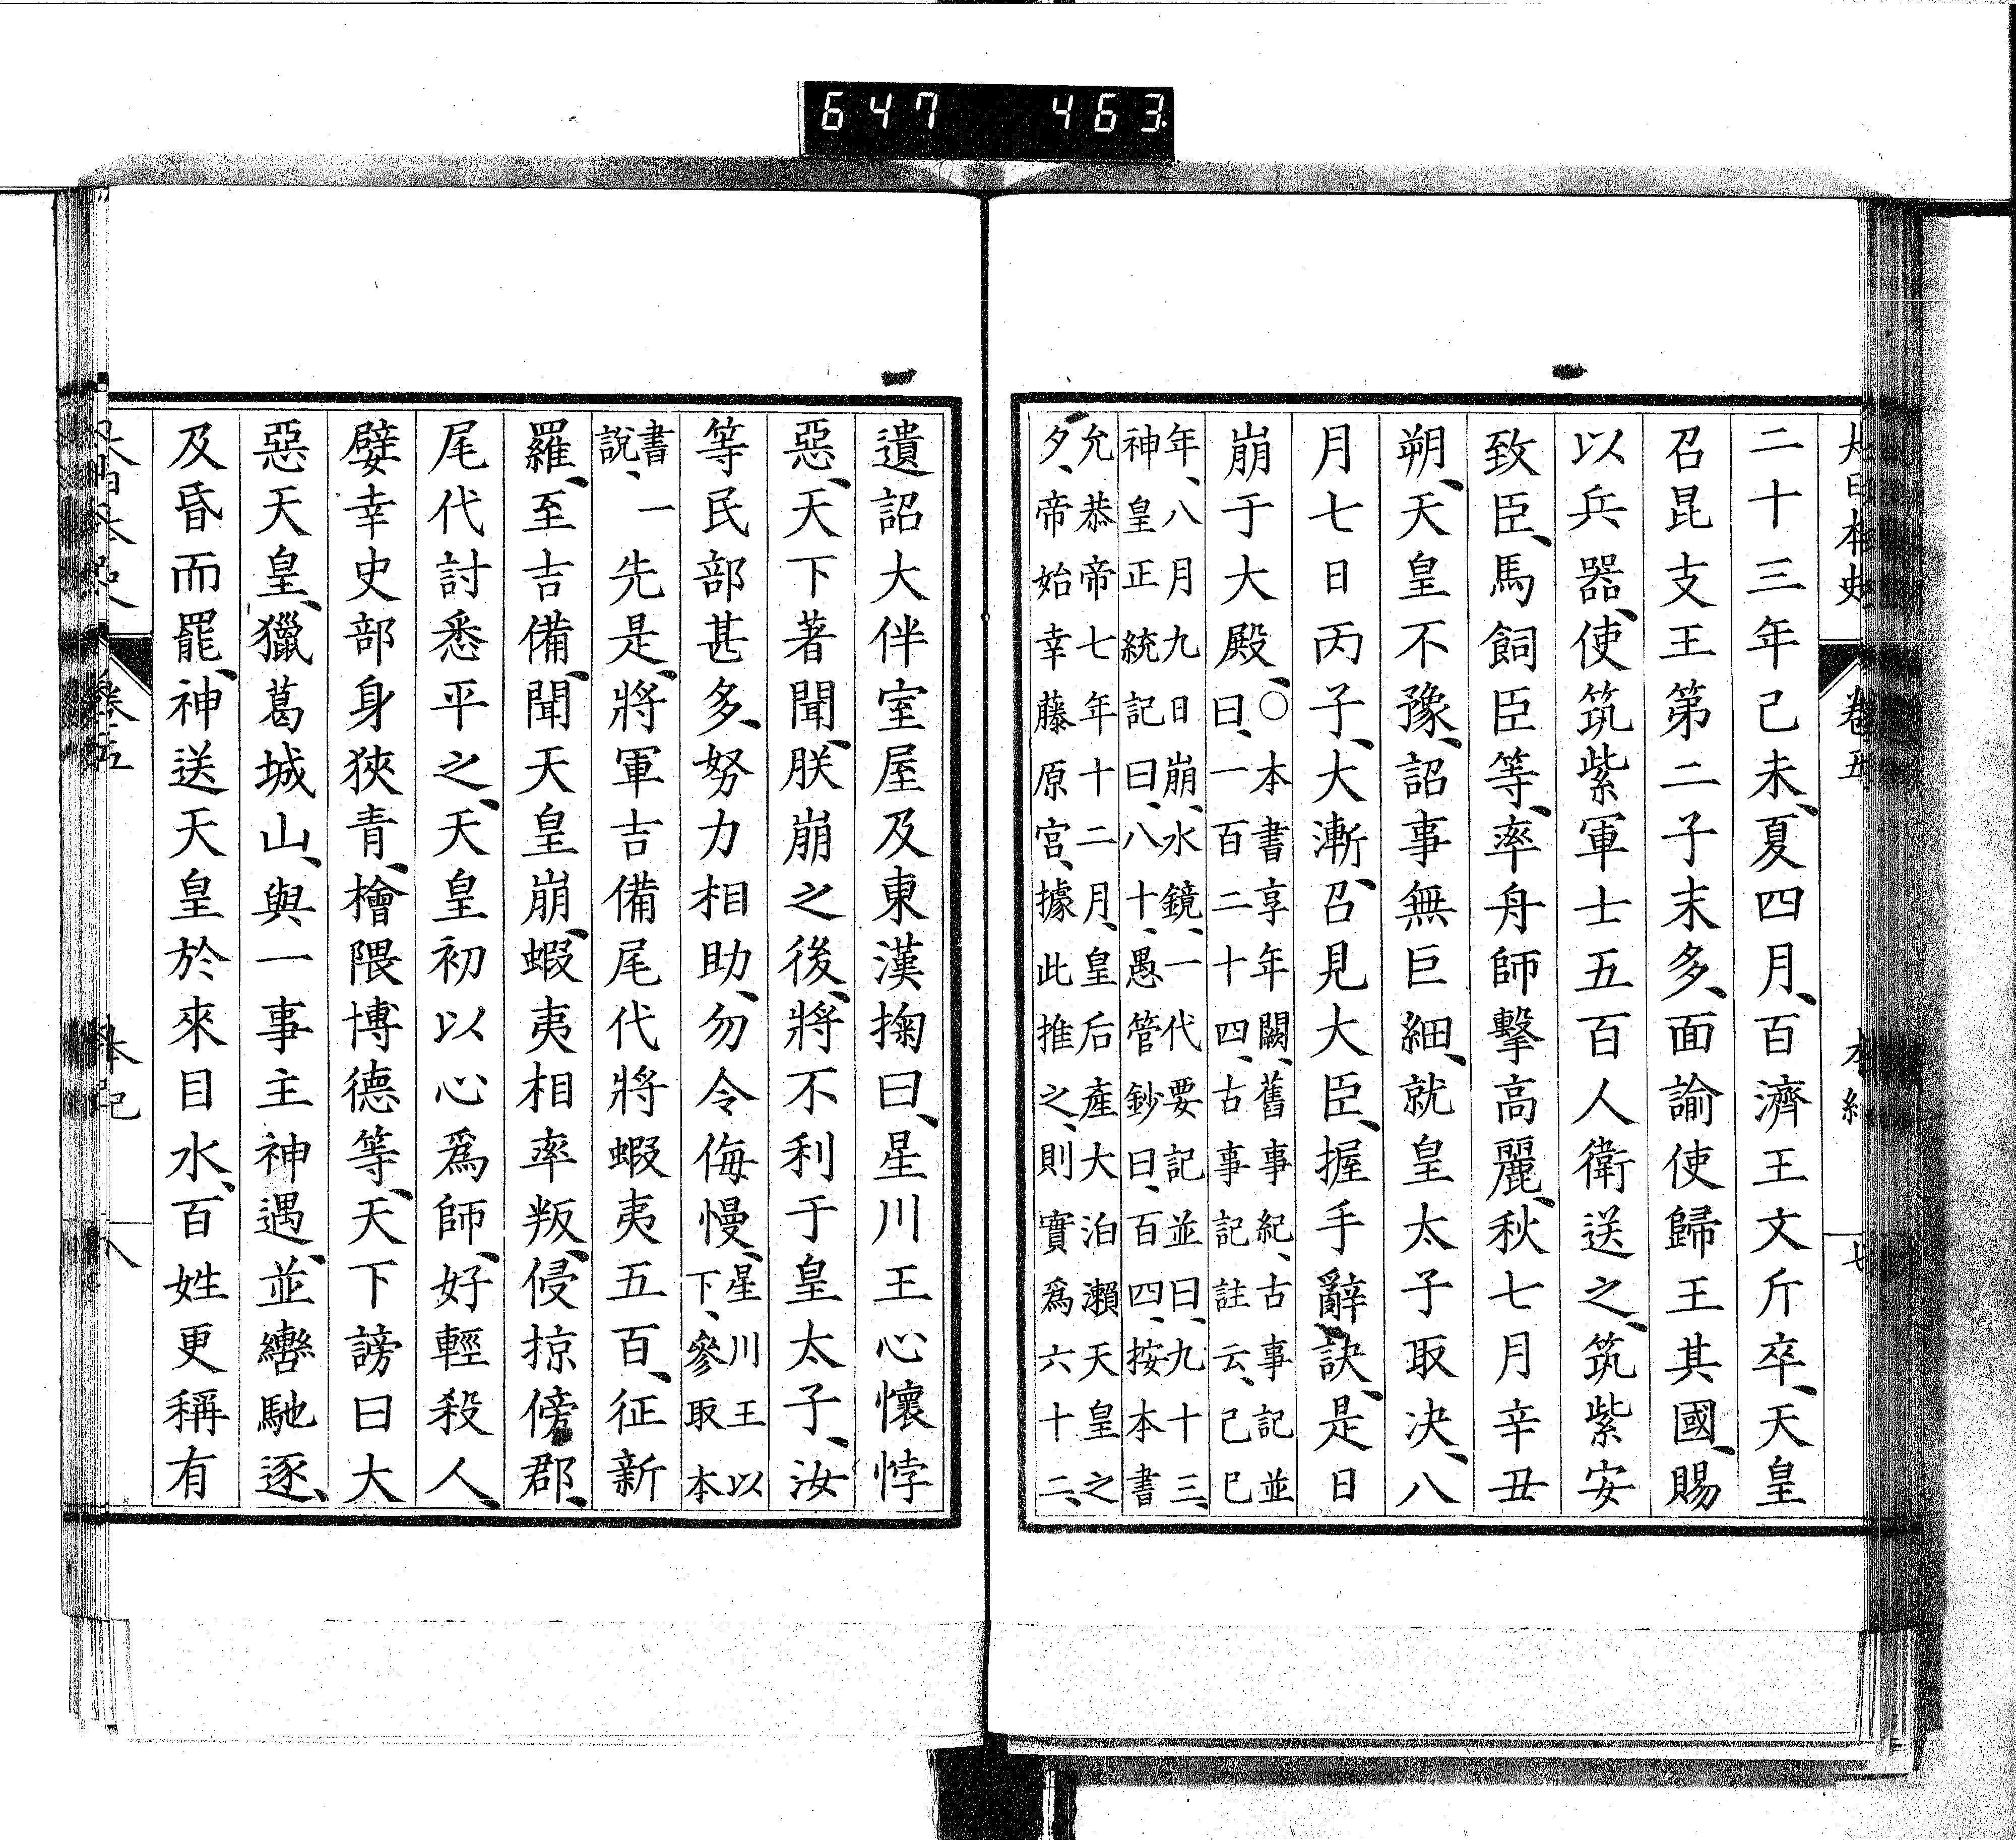 647 463
大日本史 卷五 本紀 七
二十三年己未、夏四月、百濟王文斤卒、天皇
召昆支王第二子末多、面諭使歸王其國、賜
以兵器、使筑紫軍士五百人衛送之、筑紫安
致臣、馬飼臣等、率舟師擊高麗、秋七月辛丑
朔、天皇不豫、詔事無巨細、就皇太子取决、八
月七日丙子、大漸、召見大臣、握手辭訣、是日
崩于大殿、
○本書享年闕、舊事紀、古事記並
曰、一百二十四、古事記註云、己巳
年、八月九日崩、水鏡、一代要記並曰、九十三、
神皇正統記曰、八十、愚管鈔曰、百四、按本書
允恭帝七年十二月、皇后產大泊瀨天皇之
夕、帝始幸藤原宮、據此推之、則實爲六十二、
遺詔大伴室屋及東漢掬曰、星川王心懷悖
惡、天下著聞、朕崩之後、將不利于皇太子、汝
等民部甚多、努力相助、勿令侮慢、
星川王以
下、參取本
書一
說、
先是、將軍吉備尾代將蝦夷五百、征新
羅、至吉備、聞天皇崩、蝦夷相率叛、侵掠傍郡、
尾代討悉平之、天皇初以心爲師、好輕殺人、
嬖幸史部身狹青、檜隈博德等、天下謗曰大
惡天皇、獵葛城山、與一事主神遇、並轡馳逐、
及昏而罷、神送天皇於來目水、百姓更稱有
大日本史 卷五 本紀 八